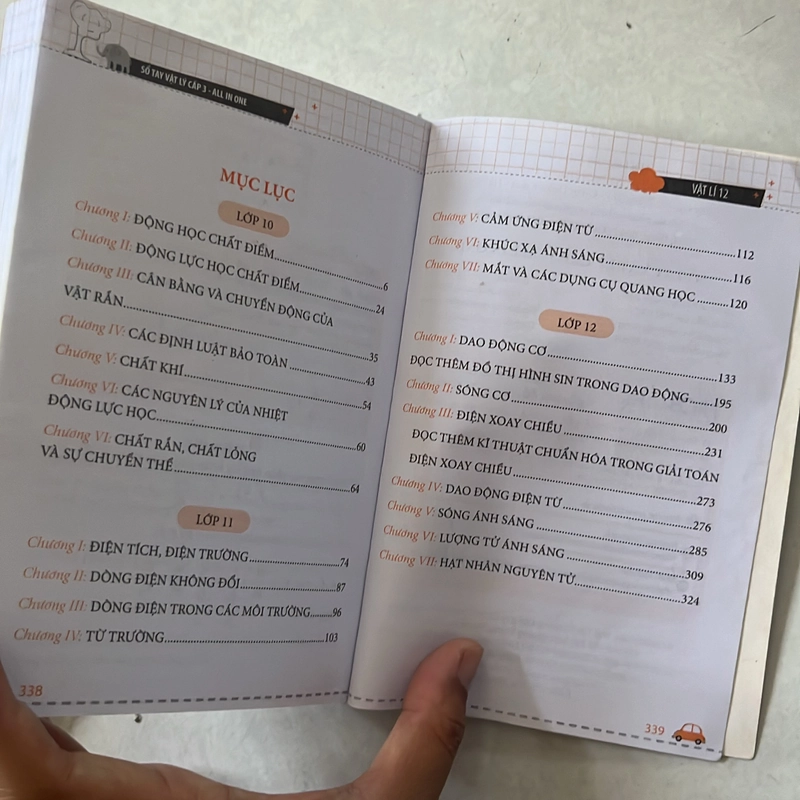 SỔ TAY VẬT LÝ CẤP 3 - ALL IN ONE
MỤC LỤC
LỚP 10
Chương I: ĐỘNG HỌC CHẤT ĐIỂM.....6
Chương II: ĐỘNG LỰC HỌC CHẤT ĐIỂM.....24
Chương III: CÂN BẰNG VÀ CHUYỂN ĐỘNG CỦA
VẬT RẮN.....35
Chương IV: CÁC ĐỊNH LUẬT BẢO TOÀN.....43
Chương V: CHẤT KHÍ.....54
Chương VI: CÁC NGUYÊN LÝ CỦA NHIỆT
ĐỘNG LỰC HỌC.....60
Chương VI: CHẤT RẮN, CHẤT LỎNG
VÀ SỰ CHUYỂN THỂ.....64
LỚP 11
Chương I: ĐIỆN TÍCH, ĐIỆN TRƯỜNG.....74
Chương II: DÒNG ĐIỆN KHÔNG ĐỔI.....87
Chương III: DÒNG ĐIỆN TRONG CÁC MÔI TRƯỜNG.....96
Chương IV: TỪ TRƯỜNG.....103
338
VẬT LÍ 12
Chương V: CẢM ỨNG ĐIỆN TỪ.....112
Chương VI: KHÚC XẠ ÁNH SÁNG.....116
Chương VII: MẮT VÀ CÁC DỤNG CỤ QUANG HỌC.....120
LỚP 12
Chương I: DAO ĐỘNG CƠ.....133
ĐỌC THÊM ĐỒ THỊ HÌNH SIN TRONG DAO ĐỘNG.....195
Chương II: SÓNG CƠ.....200
Chương III: ĐIỆN XOAY CHIỀU.....231
ĐỌC THÊM KĨ THUẬT CHUẨN HÓA TRONG GIẢI TOÁN
ĐIỆN XOAY CHIỀU.....273
Chương IV: DAO ĐỘNG ĐIỆN TỪ.....276
Chương V: SÓNG ÁNH SÁNG.....285
Chương VI: LƯỢNG TỬ ÁNH SÁNG.....309
Chương VII: HẠT NHÂN NGUYÊN TỬ.....324
339